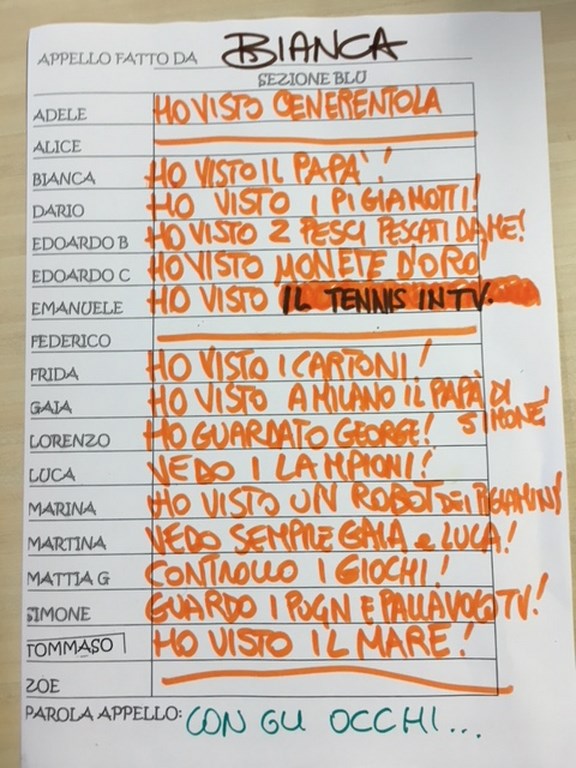 APPELLO FATTO DA BIANCA
SEZIONE BLU
ADELE HO VISTO CENERENTOLA
ALICE
BIANCA HO VISTO IL PAPA'!
DARIO HO VISTO I PIGIAMOTTI!
EDOARDO B HO VISTO 2 PESCI PESCATI DA ME!
EDOARDO C HO VISTO MONETE D'ORO
EMANUELE HO VISTO IL TENNIS IN TV.
FEDERICO
FRIDA HO VISTO I CARTONI!
GAIA HO VISTO A MILANO IL PAPÀ DI SIMONE
LORENZO HO GUARDATO GEORGE!
LUCA VEDO I LAMPIONI!
MARINA HO VISTO UN ROBOT DEI PIGIAMINI
MARTINA VEDO SEMPRE GAIA e LUCA!
MATTIA G CONTROLLO I GIOCHI!
SIMONE GUARDO I POGN E PALLAVOLO TV!
TOMMASO HO VISTO IL MARE!
ZOE
PAROLA APPELLO: CON GLI OCCHI...